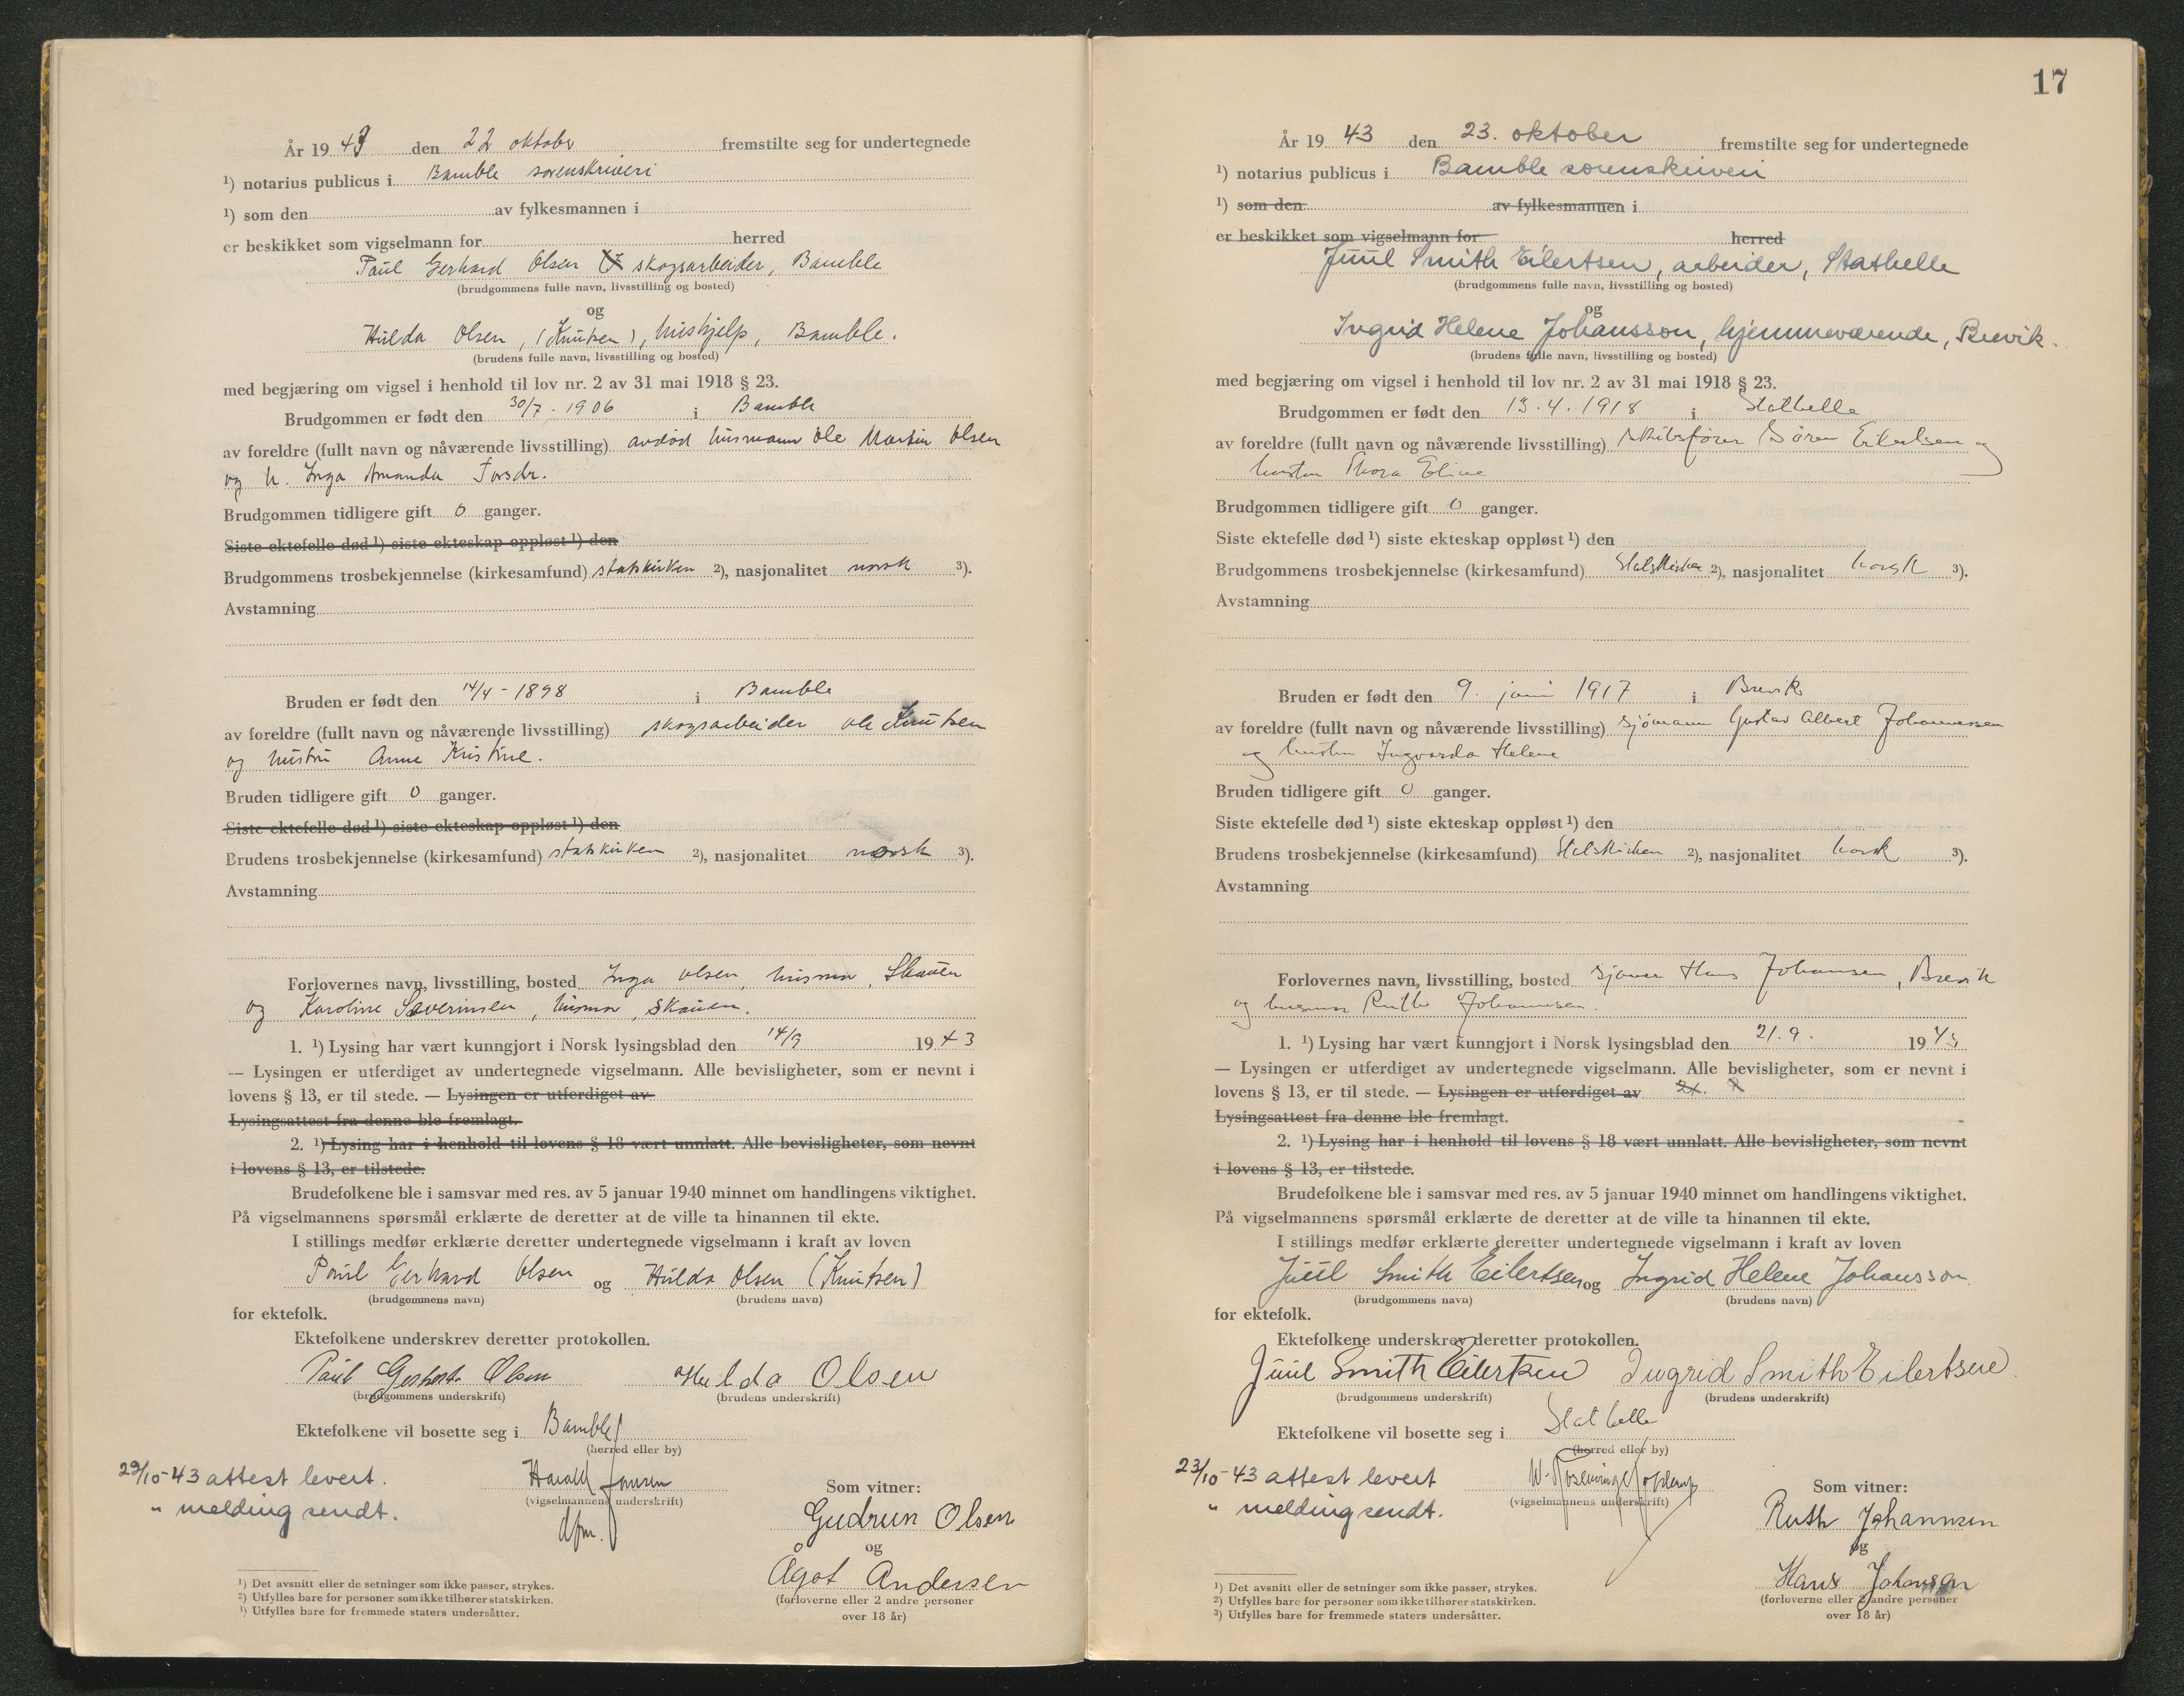 År 19 43 den 22 oktober fremstilte seg for undertegnede
¹) notarius publicus i Bamble sorenskriveri
¹) som den av fylkesmannen i
er beskikket som vigselmann for herred
Paul Gerhard Olsen skogsarbeider, Bamble
(brudgommens fulle navn, livsstilling og bosted)
og
Hulda Olsen, (Knutsen), hushjelp, Bamble.
(brudens fulle navn, livsstilling og bosted)
med begjæring om vigsel i henhold til lov nr. 2 av 31 mai 1918 § 23.
Brudgommen er født den 30/7 - 1906 i Bamble
av foreldre (fullt navn og nåværende livsstilling) avdød husmann Ole Martin Olsen
og h. Inga Amanda Torsdr.
Brudgommen tidligere gift 0 ganger.
Siste ektefelle død ¹) siste ekteskap oppløst ¹) den
Brudgommens trosbekjennelse (kirkesamfund) statskirken ²), nasjonalitet norsk ³).
Avstamning
Bruden er født den 14/4 - 1898 i Bamble
av foreldre (fullt navn og nåværende livsstilling) skogsarbeider Ole Knutsen
og hustru Anne Kristine.
Bruden tidligere gift 0 ganger.
Siste ektefelle død ¹) siste ekteskap oppløst ¹) den
Brudens trosbekjennelse (kirkesamfund) statskirken ²), nasjonalitet norsk ³).
Avstamning
Forlovernes navn, livsstilling, bosted Inga Olsen, husmor, Skauen
og Karoline Severinsen, husmor, Skauen.
1. ¹) Lysing har vært kunngjort i Norsk lysingsblad den 14/9 19 43
— Lysingen er utferdiget av undertegnede vigselmann. Alle bevisligheter, som er nevnt i
lovens § 13, er til stede. — Lysingen er utferdiget av
Lysingsattest fra denne ble fremlagt.
2. ¹) Lysing har i henhold til lovens § 18 vært unnlatt. Alle bevisligheter, som nevnt
i lovens § 13, er tilstede.
Brudefolkene ble i samsvar med res. av 5 januar 1940 minnet om handlingens viktighet.
På vigselmannens spørsmål erklærte de deretter at de ville ta hinannen til ekte.
I stillings medfør erklærte deretter undertegnede vigselmann i kraft av loven
Paul Gerhard Olsen og Hulda Olsen (Knutsen)
(brudgommens navn) (brudens navn)
for ektefolk.
Ektefolkene underskrev deretter protokollen.
Paul Gerhard Olsen Hulda Olsen
(brudgommens underskrift) (brudens underskrift)
Ektefolkene vil bosette seg i Bamble
(herred eller by)
23/10-43 attest levert.
" melding sendt.
Harald Jansen
(vigselmannens underskrift)
dfm.
Som vitner:
Gudrun Olsen
og
Ågot Andersen
(forloverne eller 2 andre personer
over 18 år)
¹) Det avsnitt eller de setninger som ikke passer, strykes.
²) Utfylles bare for personer som ikke tilhører statskirken.
³) Utfylles bare for fremmede staters undersåtter.
17
År 19 43 den 23. oktober fremstilte seg for undertegnede
¹) notarius publicus i Bamble sorenskriveri
¹) som den av fylkesmannen i
er beskikket som vigselmann for herred
Juul Smith Eilertsen, arbeider, Stathelle
(brudgommens fulle navn, livsstilling og bosted)
og
Ingrid Helene Johansson, hjemmeværende, Brevik.
(brudens fulle navn, livsstilling og bosted)
med begjæring om vigsel i henhold til lov nr. 2 av 31 mai 1918 § 23.
Brudgommen er født den 13.4.1918 i Stathelle
av foreldre (fullt navn og nåværende livsstilling) skibsfører Søren Eilertsen og
hustru Thora Eline
Brudgommen tidligere gift 0 ganger.
Siste ektefelle død ¹) siste ekteskap oppløst ¹) den
Brudgommens trosbekjennelse (kirkesamfund) Statskirken ²), nasjonalitet norsk ³).
Avstamning
Bruden er født den 9. juni 1917 i Brevik
av foreldre (fullt navn og nåværende livsstilling) sjømann Gustav Albert Johannessen
og hustru Ingvarda Helene
Bruden tidligere gift 0 ganger.
Siste ektefelle død ¹) siste ekteskap oppløst ¹) den
Brudens trosbekjennelse (kirkesamfund) Statskirken ²), nasjonalitet norsk ³).
Avstamning
Forlovernes navn, livsstilling, bosted Hans Johansen, Brevik
og husmor Ruth Johannsen.
1. ¹) Lysing har vært kunngjort i Norsk lysingsblad den 21.9. 19 43
— Lysingen er utferdiget av undertegnede vigselmann. Alle bevisligheter, som er nevnt i
lovens § 13, er til stede. — Lysingen er utferdiget av 21.
Lysingsattest fra denne ble fremlagt.
2. ¹) Lysing har i henhold til lovens § 18 vært unnlatt. Alle bevisligheter, som nevnt
i lovens § 13, er tilstede.
Brudefolkene ble i samsvar med res. av 5 januar 1940 minnet om handlingens viktighet.
På vigselmannens spørsmål erklærte de deretter at de ville ta hinannen til ekte.
I stillings medfør erklærte deretter undertegnede vigselmann i kraft av loven
Juul Smith Eilertsen og Ingrid Helene Johansson
(brudgommens navn) (brudens navn)
for ektefolk.
Ektefolkene underskrev deretter protokollen.
Juul Smith Eilertsen Ingrid Smith Eilertsen
(brudgommens underskrift) (brudens underskrift)
Ektefolkene vil bosette seg i Stathelle
(herred eller by)
23/10-43 attest levert
" melding sendt.
(vigselmannens underskrift)
Som vitner:
Ruth Johannsen
og
Hans Johansen
(forloverne eller 2 andre personer
over 18 år)
¹) Det avsnitt eller de setninger som ikke passer, strykes.
²) Utfylles bare for personer som ikke tilhører statskirken.
³) Utfylles bare for fremmede staters undersåtter.